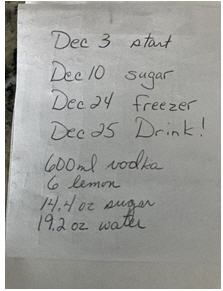 Dec 3 start
Dec 10 sugar
Dec 24 freezer
Dec 25 Drink!
600ml vodka
6 lemon
14.4 oz sugar
19.2 oz water